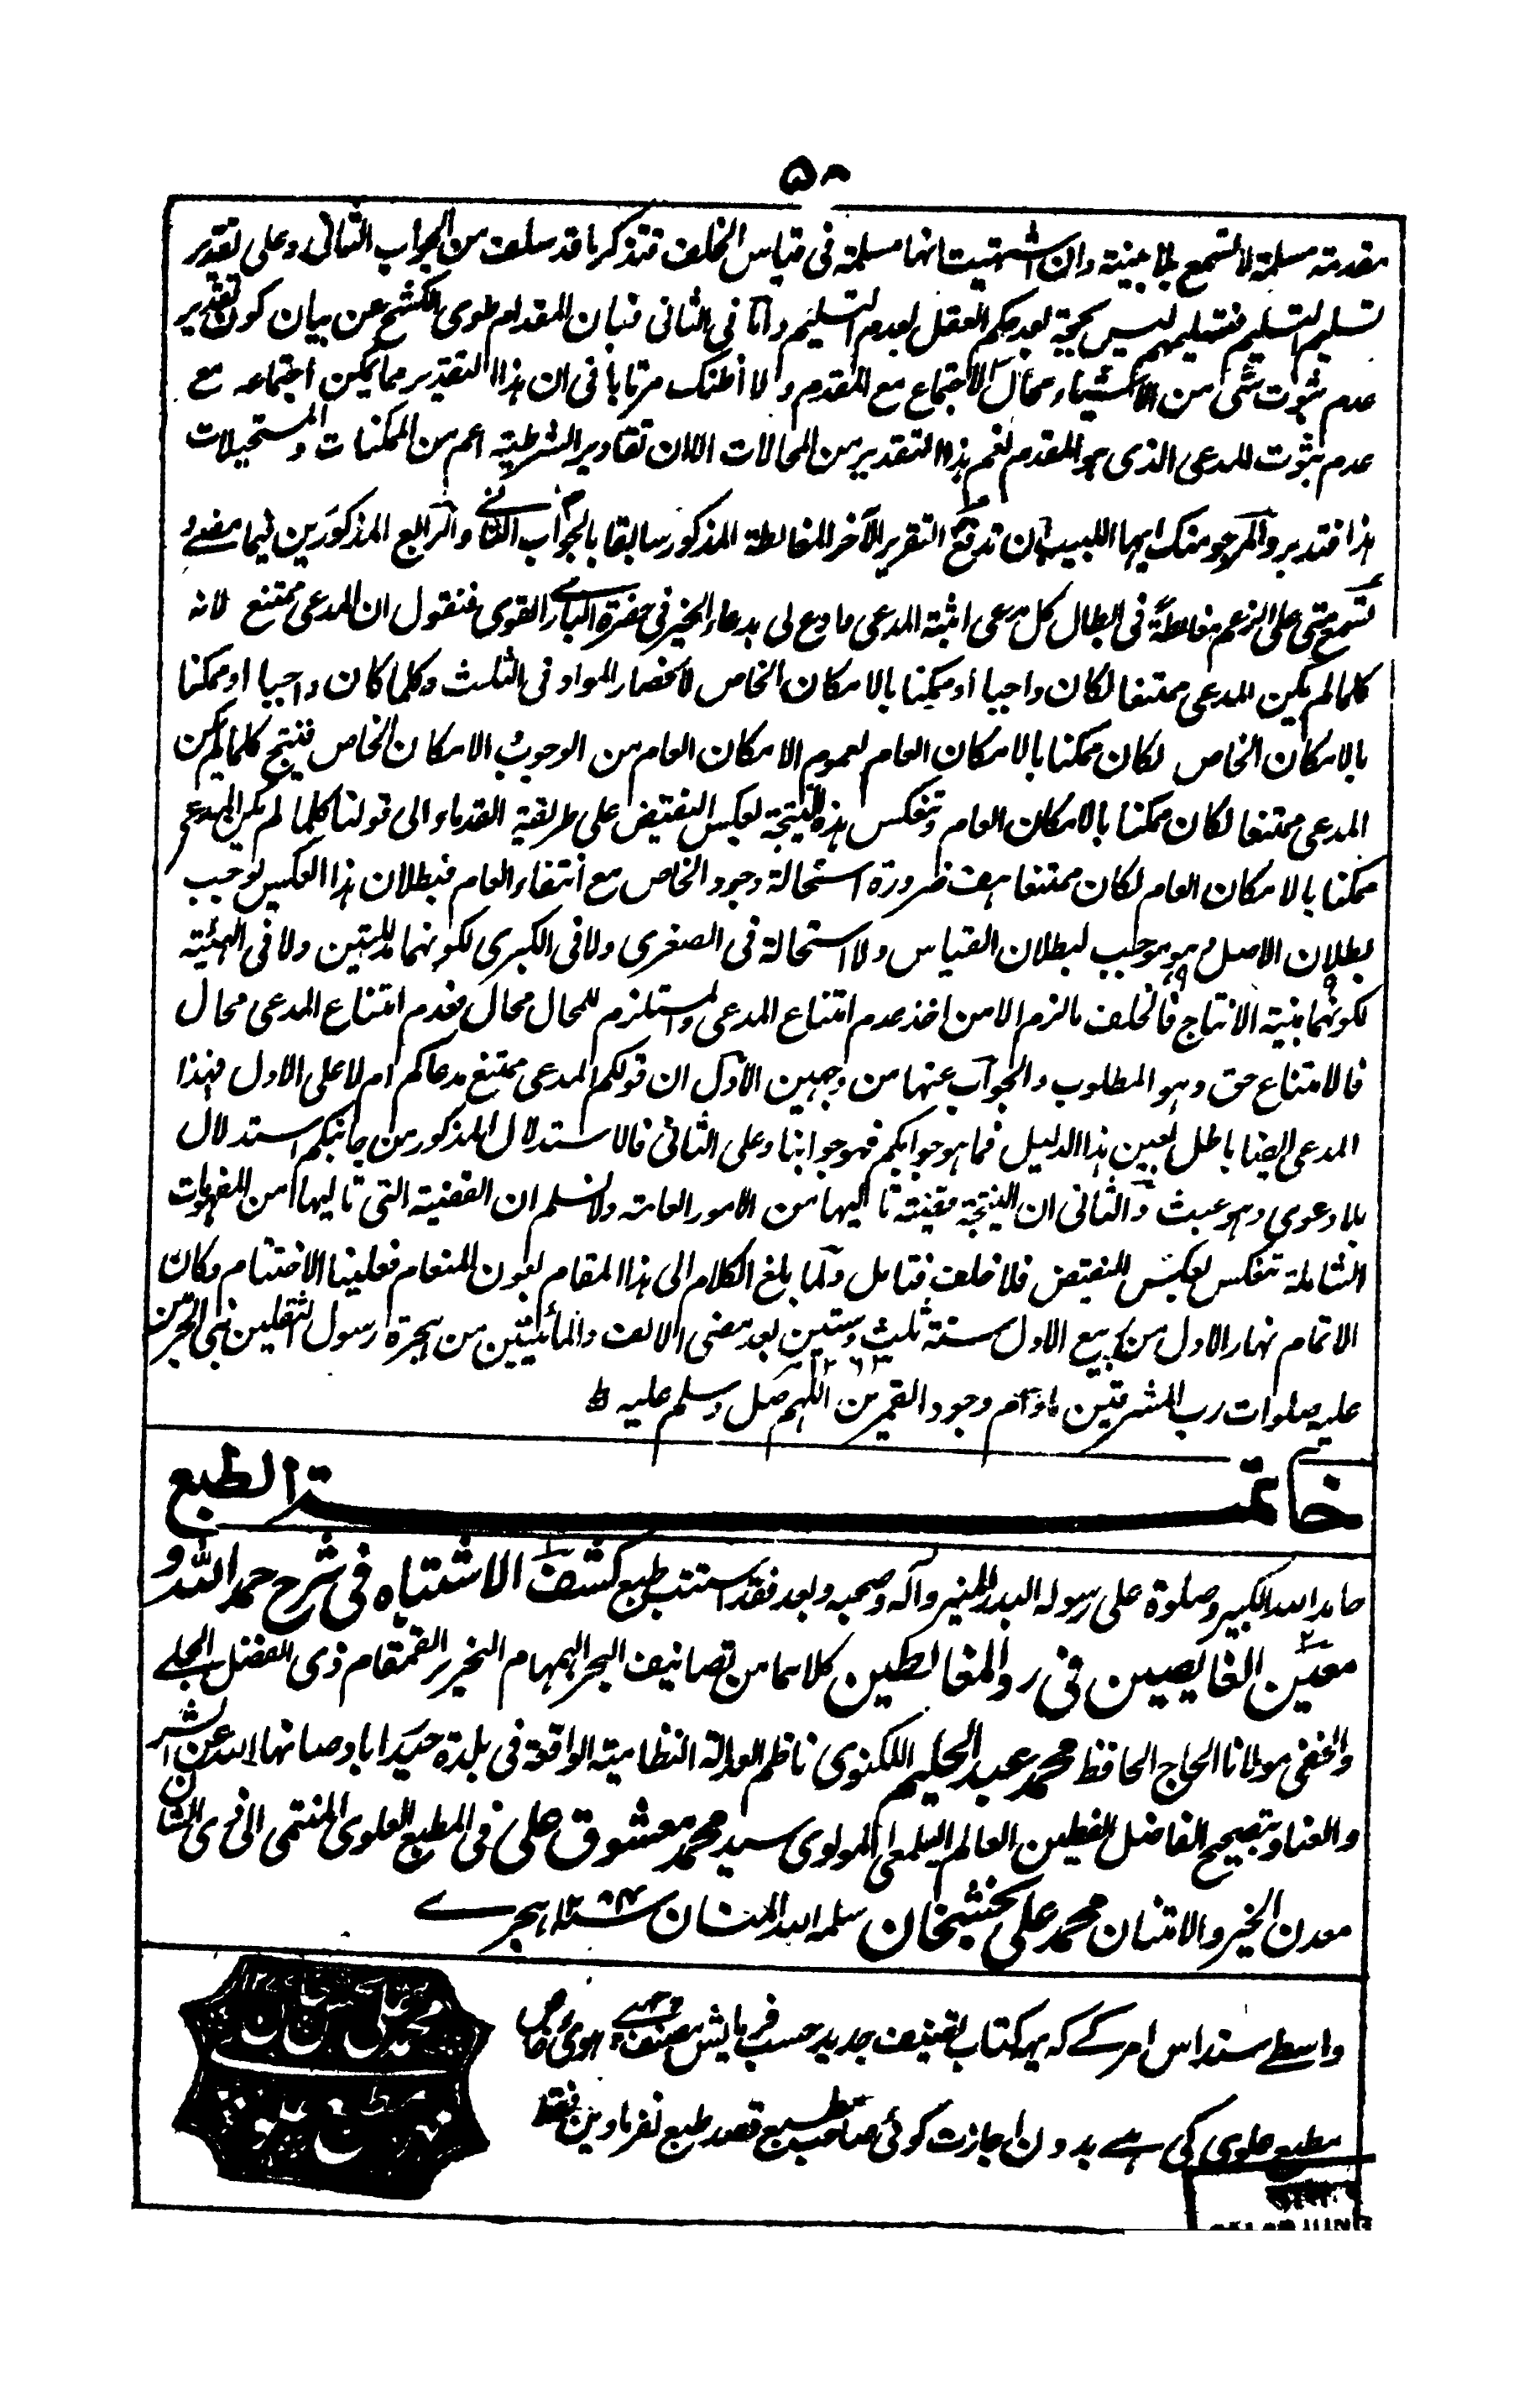 ٥٠
مقدمته مسلمة لا تسمع بلا بينة وان اشتهيت انها مسلمة فى قياس الخلف فتذكر ما قد سلف من الجواب الثانى وعلى تقدير
تسليم التسليم فتسليمهم ليس بحجة بعد حكم العقل بعدم التسليم واما فى الثانى فبان المقدام طوى الكشح عن بيان كون تقدير
عدم ثبوت شئ من الاشياء محال الاجتماع مع المقدم ولا أظنك مرتابا فى ان هذا التقدير مما يمكن اجتماعه مع
عدم ثبوت المدعى الذى هو المقدم نعم هذا التقدير من المحالات الا ان تقادير الشرطية اعم من الممكنات والمستحيلات
هذا فتدبر والمرجو منك ايها اللبيب ان تدفع التقرير الآخر للمغالطة المذكور سابقا بالجواب الثانى والرابع المذكورين فيما مضى و
تسمع متى على الزعم مغالطة فى ابطال كل مدعى اثبته المدعى مادع لى بدعاء الخير فى حضرة البارى القوى فنقول ان المدعى ممتنع لانه
كلما لم يكن المدعى ممتنعا لكان واجبا او ممكنا بالامكان الخاص لانحصار المواد فى الثلث وكلما كان واجبا او ممكنا
بالامكان الخاص لكان ممكنا بالامكان العام لعموم الامكان العام من الوجوب والامكان الخاص فينتج كلما لم يكن
المدعى ممتنعا لكان ممكنا بالامكان العام وتنعكس هذه النتيجة بعكس النقيض على طريقة القدماء الى قولنا كلما لم يكن المدعى
ممكنا بالامكان العام لكان ممتنعا هف ضرورة استحالة وجود الخاص مع انتفاء العام فبطلان هذا العكس يوجب
بطلان الاصل وهو موجب لبطلان القياس ولا استحالة فى الصغرى ولا فى الكبرى لكونهما مدللتين ولا فى الهيئة
لكونها بينة الانتاج فالخلف مالزم الا من اخذ عدم امتناع المدعى والمستلزم للمحال محال فعدم امتناع المدعى محال
فالامتناع حق وهو المطلوب والجواب عنها من وجهين الاول ان قولكم المدعى ممتنع مدعاكم ام لا على الاول فهذا
المدعى ايضا باطل بعين هذا الدليل فما هو جوابكم فهو جوابنا وعلى الثانى فالاستدلال المذكور من جانبكم استدلال
بلا دعوى وهو عبث والثانى ان النتيجة مقيتة تاليها من الامور العامة ولا نسلم ان القضية التى تاليها من المفهومات
الشاملة تنعكس بعكس النقيض فلا خلف فتامل ولما بلغ الكلام الى هذا المقام بعون المنعام فعلينا الاختتام وكان
الاتمام نهار الاول من ربيع الاول سنة ثلث وستين بعد مضى الالف والمأتين من هجرة رسول الثقلين نبى الحرمين
١٢٦٣
عليه صلوات رب المشرقين ما دام وجود القمرين اللهم صل وسلم عليه ط
خاتمة الطبع
حامدا لله الكبير وصلوة على رسوله البدر المنير وآله وصحبه وبعد فقد استتب طبع كشف الاشتباه فى شرح حمد الله و
معين الغايصين فى رد المغالطين كلاهما من تصانيف البحر الهمام النحرير القمقام ذى الفضل الجلى
والخفى مولانا الحاج الحافظ محمد عبد الحليم اللكنوى ناظم العدالة النظامية الواقعة فى بلدة حيدراباد صانها الله عن الشر
والعناد بتصحيح الفاضل الفطين العالم اليلمعى المولوى سيد محمد معشوق على فى المطبع العلوى المنتمى الى ذى الشان
معدن الخير والامتنان محمد على بخشخان سلمه الله المنان سنة ١٢٨٤ هجرى
واسطے سند اس امر کے کہ یہہ کتاب تصنیف جدید حسب فرمایش مصنف ہوئی خاص
مطبع علوی کی ہے بدون اجازت کوئی صاحب مطبع قصد طبع نفرماوین فقط